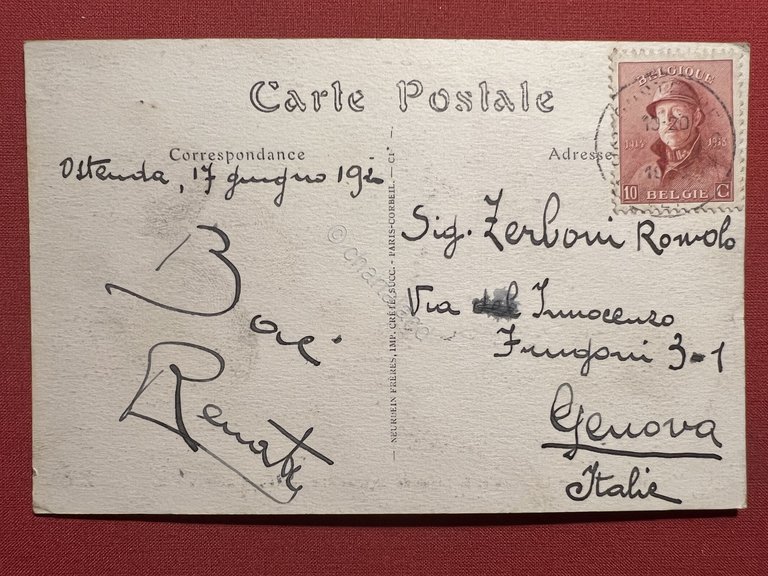 Carte Postale
Correspondance
Adresse
Ostenda, 17 giugno 192
Baci
Renata
Sig. Zerboni Romolo
Via Innocenzo
Frugoni 3-1
Genova
Italie
NEURDEIN FRÈRES, IMP. CRÉTÉ, SUCC. - PARIS-CORBEIL. — Cie
BELGIQUE
1914 1918
10 BELGIE C
19-20